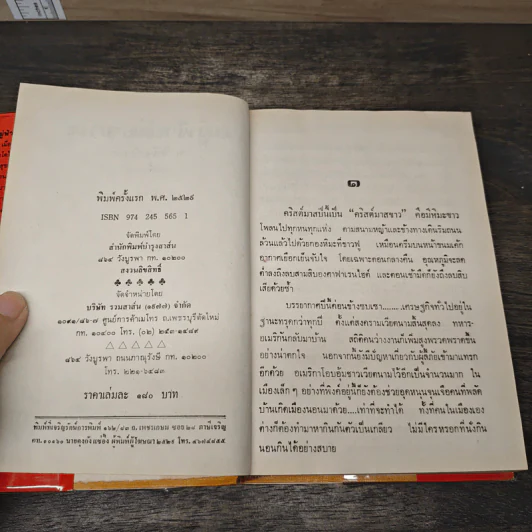 พิมพ์ครั้งแรก พ.ศ. ๒๕๒๕
ISBN 974 245 565 1
จัดพิมพ์โดย
สำนักพิมพ์บำรุงสาส์น
๘๖๔ วังบูรพา กท. ๑๐๒๐๐
สงวนลิขสิทธิ์
♣ ♣ ♣ ♣ ♣
จัดจำหน่ายโดย
บริษัท รวมสาส์น (๑๙๗๗) จำกัด
๑๐๙๑/๘๖-๗ ศูนย์การค้าเมโทร ถ.เพชรบุรีตัดใหม่
กท. ๑๐๔๐๐ โทร. (๐๒) ๒๕๐-๑๔๘๙
△ △ △ △ △
๘๖๔ วังบูรพา ถนนภาณุรังษี กท. ๑๐๒๐๐
โทร. ๒๒๑-๖๔๘๓
ราคาเล่มละ ๑๘๐ บาท
๑
คริสต์มาสปีนี้เป็น “คริสต์มาสขาว” คือมีหิมะขาว
โพลนไปทุกหนทุกแห่ง ตามสนามหญ้าและข้างทางเดินริมถนน
ล้วนแล้วไปด้วยกองหิมะที่ขาวฟู เหมือนครีมบนหน้าขนมเค้ก
อากาศเยือกเย็นจับใจ โดยเฉพาะตอนกลางคืน อุณหภูมิจะลด
ต่ำลงถึงลบสามสิบองศาฟาเรนไฮต์ และตอนเช้ามืดก็ยังถึงลบสิบ
เสียด้วยซ้ำ
บรรยากาศปีนี้ค่อนข้างซบเซา.........เศรษฐกิจทั่วไปอยู่ใน
ฐานะทรุดกว่าทุกปี ตั้งแต่สงครามเวียดนามสิ้นสุดลง ทหาร-
อเมริกันกลับมาบ้าน สถิติคนว่างงานก็เพิ่มสูงพรวดพราดขึ้น
อย่างน่าตกใจ นอกจากนี้ยังมีปัญหาเกี่ยวกับผู้ลี้ภัยเข้ามาแทรก
อีกด้วย อเมริกาโอบอุ้มชาวเวียดนามไว้อีกเป็นจำนวนมาก ใน
เมืองเล็กๆ อย่างที่พิงค์อยู่นี้ก็ยังต้องช่วยอุดหนุนจุนเจือคนที่พลัด
บ้านเกิดเมืองนอนมาด้วย....เท่าที่จะทำได้ ทั้งที่คนในเมืองเอง
ต่างก็ต้องทำมาหากินกันตัวเป็นเกลียว ไม่มีใครหรอกที่นั่งกิน
นอนกินได้อย่างสบาย